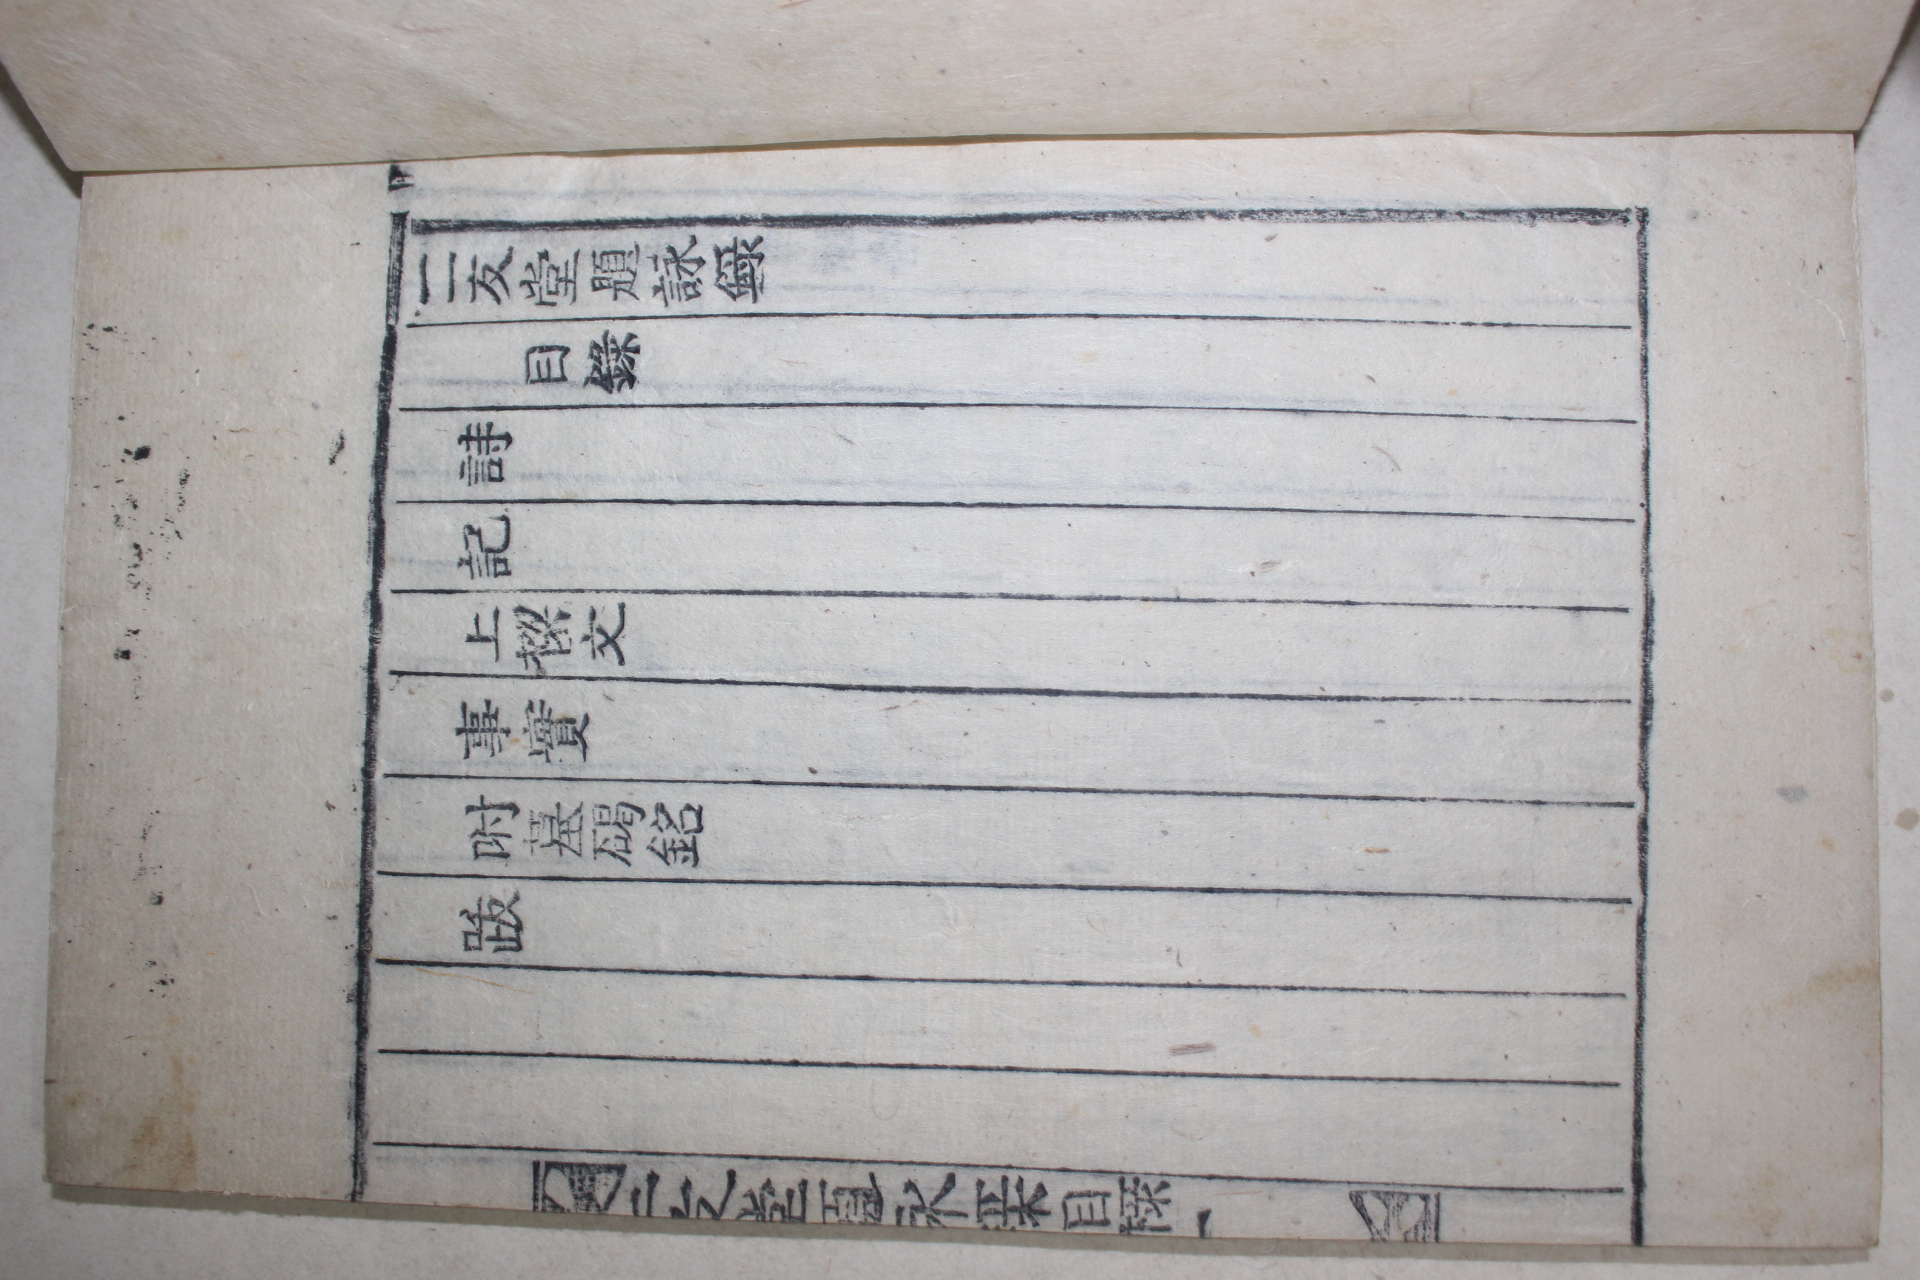 二友堂題詠錄
目錄
詩
記
上樑文
事實
附墓碣銘
跋
二友堂題詠錄目錄 一